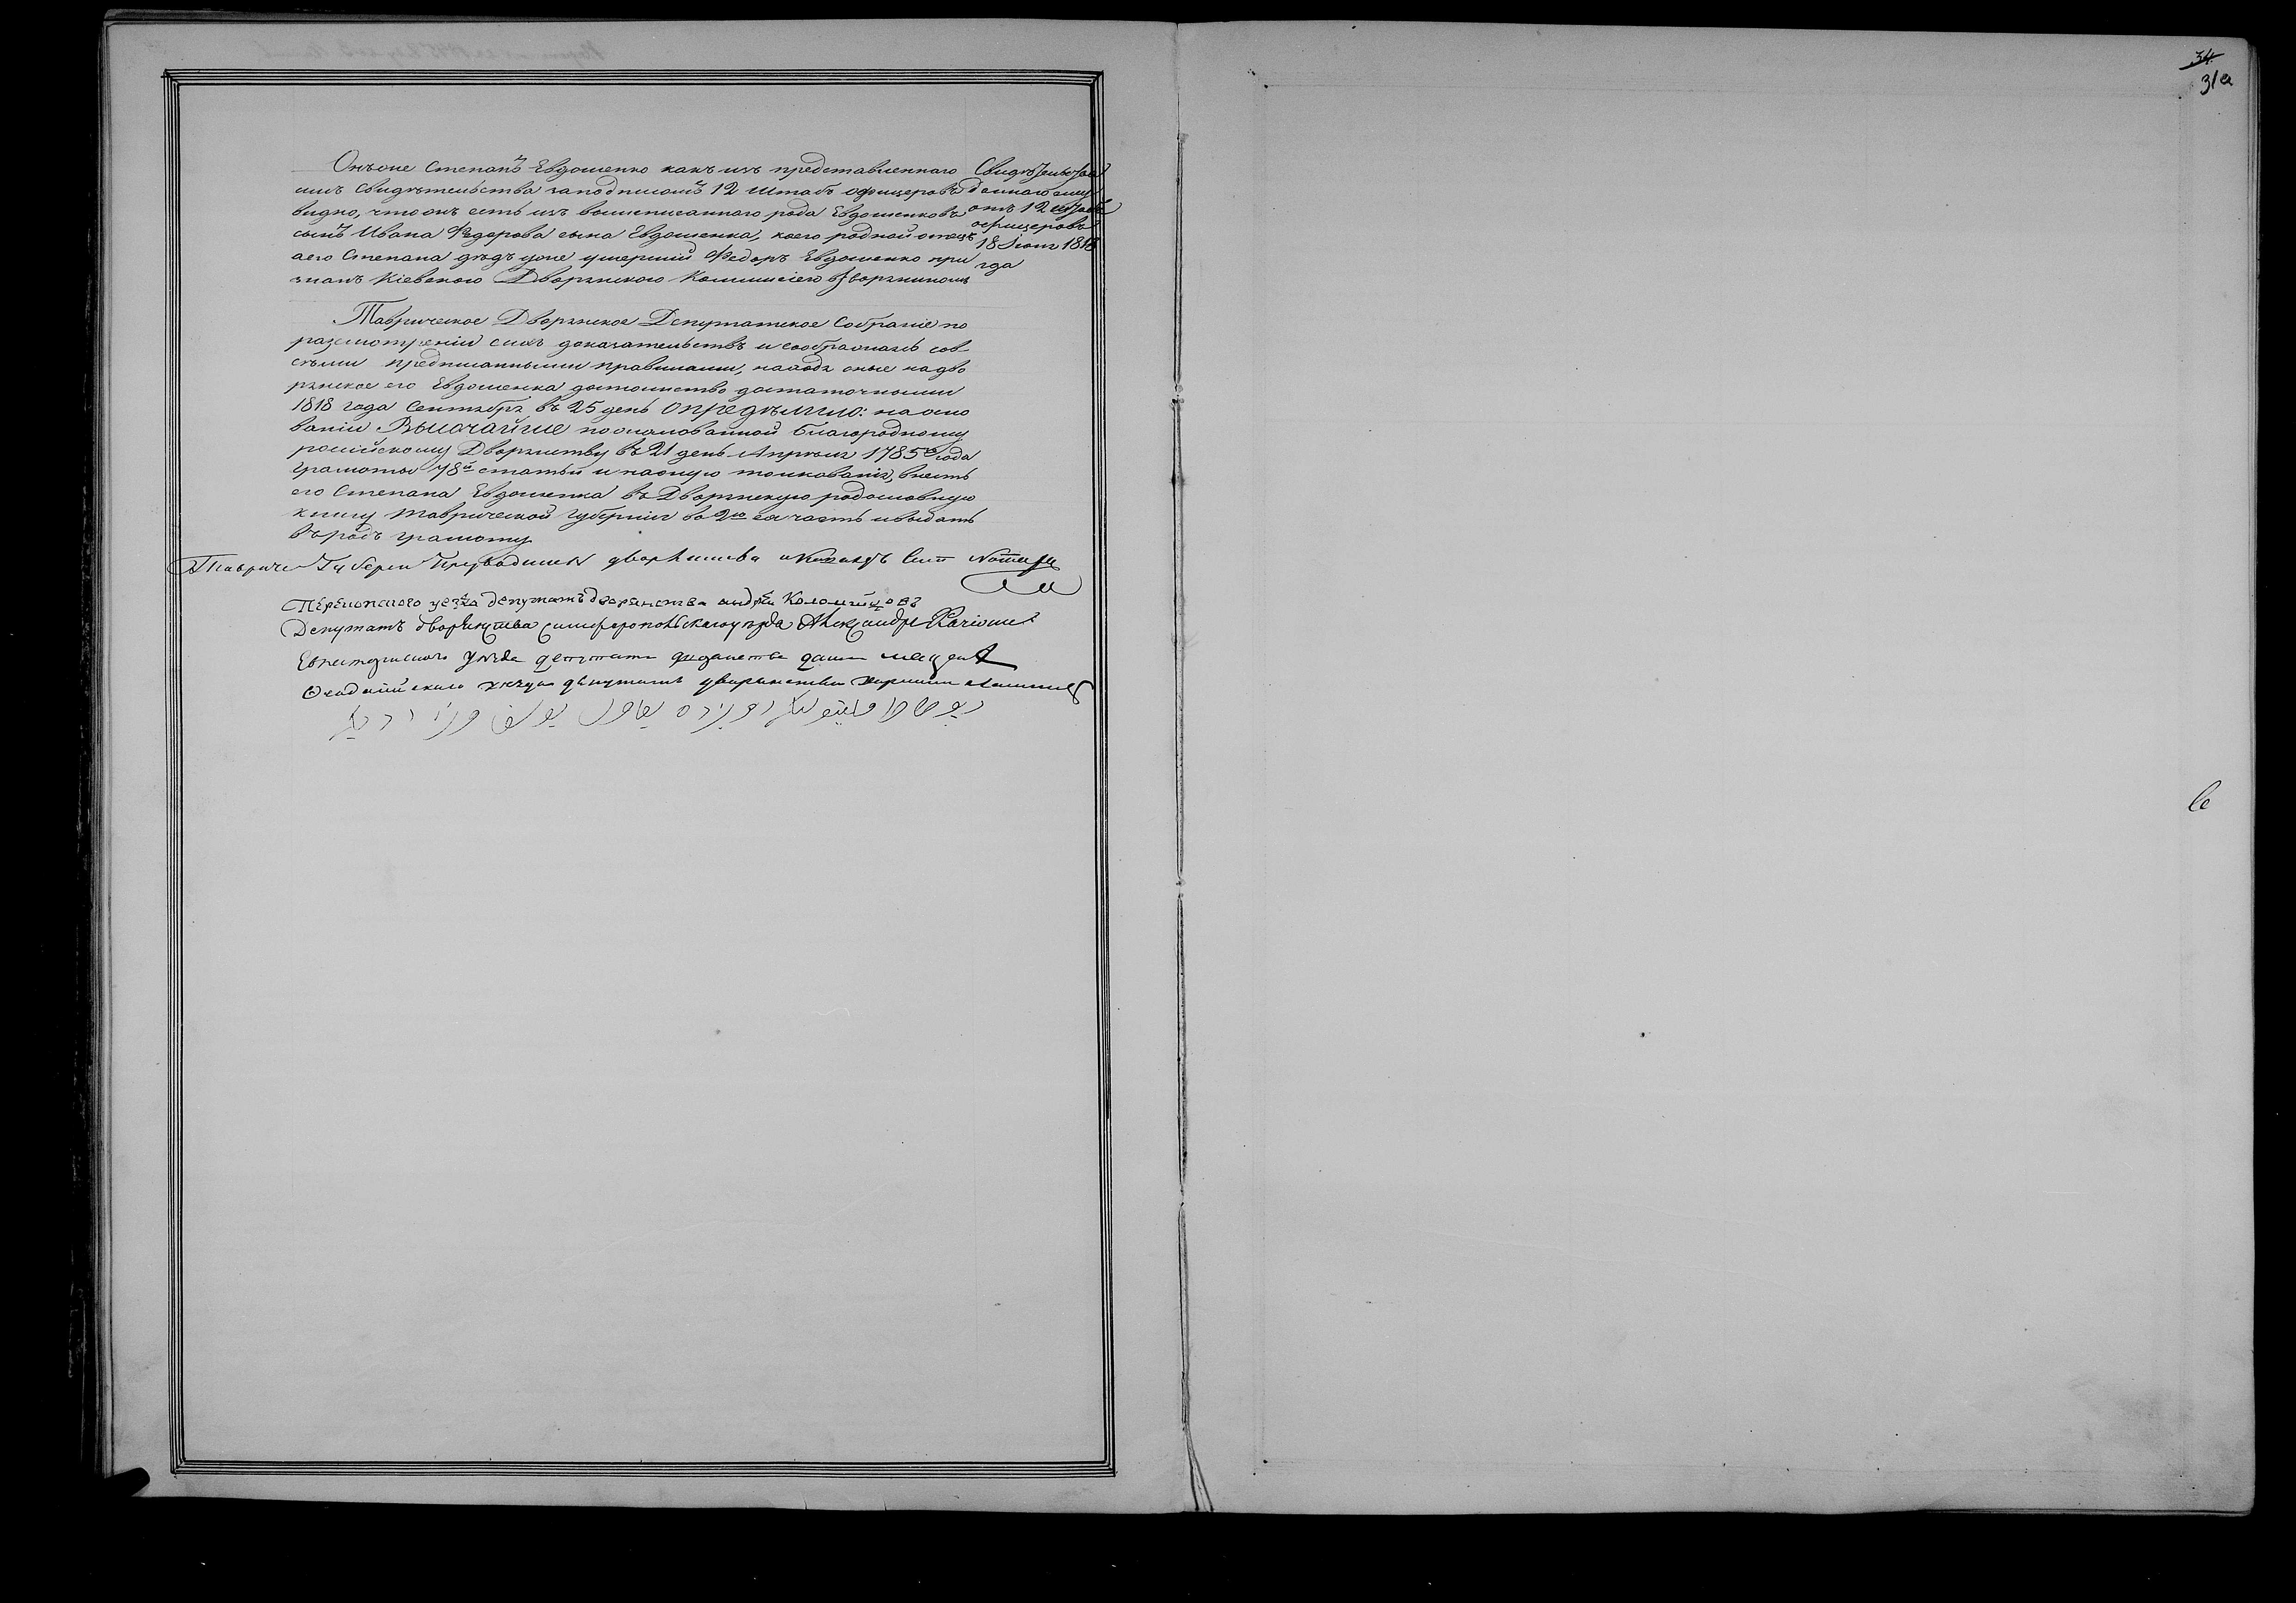 Онъоне Степанъ Евдошенко какъ изъ представленнаго
имъ Свидѣтельства заподписомъ 12 Штабъ офицеровъ
видно, что онъ есть изъ вышеписаннаго рода Евдошенковъ
сынъ Ивана Федорова сына Евдошенка, коего родной отецъ
аего Степана дѣдъ уже умершій Федоръ Евдошенко при
знанъ Кіевскою Дворянскою Коммисіею вдворяниномъ
Свидѣтельства
даннаго ему
отъ 12 штабъ
офицеровъ
18 Іюня 1818
года
Таврическое Дворянское Депутатское Собраніе по
разсмотреніи сихъ доказательствъ и сообразясь сов
сѣми предписанными правилами, находя оные на дво
рянское его Евдошенка достоинство достаточными
1818 года Сентября въ 25 день Опредѣлило: на осно
ваніи Высочайше пожалованной благородному
россійскому Дворянству въ 21 день Апрѣля 1785го года
грамоты 78й статьи и наоную толкованія, внесть
его Степана Евдошенка въ Дворянскую родословную
книгу Таврической губерніи во 2ю ея часть ивыдать
въродъ грамоту
Тавриче Губерн дворянства
Перекопского уезда депутатъ дворянства андрей Коломийцовъ
Депутатъ дворянства симферопольскагоуезда Александръ
Евпаторийского уезда депутатъ
Феодосийскаго депутатъ дворянства
34
31а